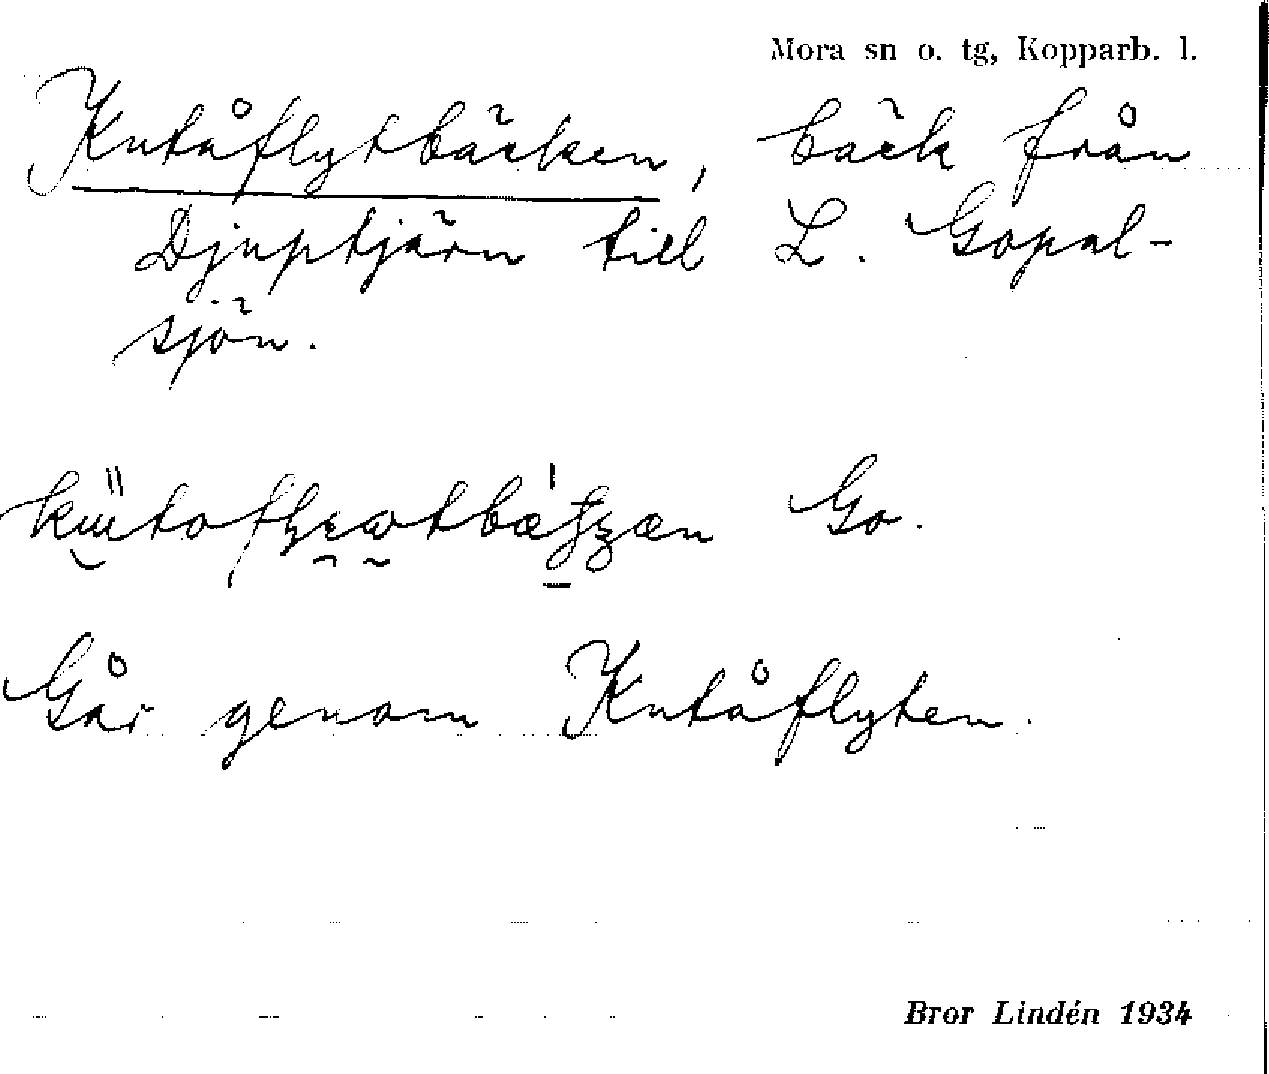 Mora sn o. tg, Kopparb. l.
Kutåflytbäcken, bäck från
Djuptjärn till L. Gopal-
sjön.
Go.
Går genom Kutåflyten.
Bror Lindén 1934